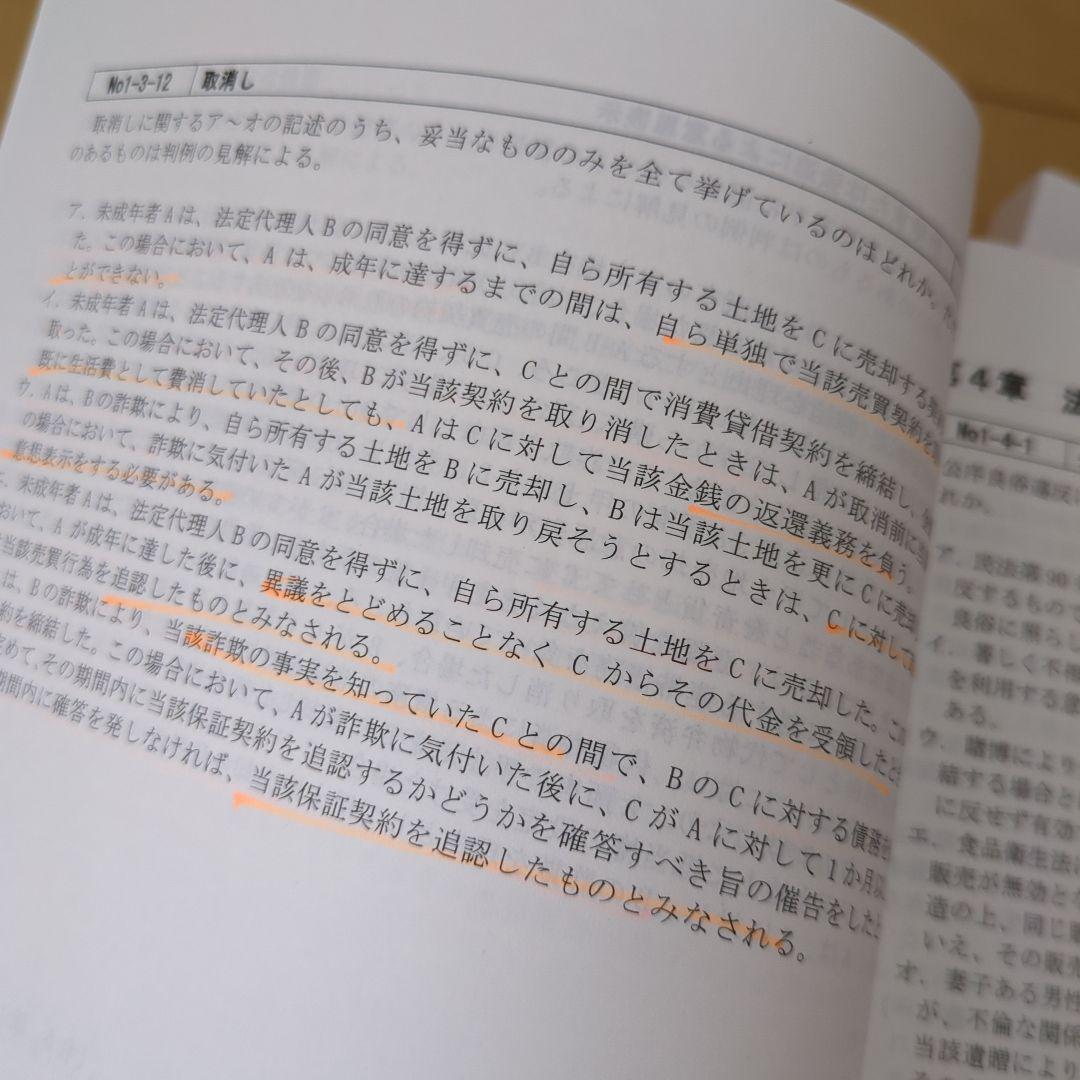 No1-3-12 取消し
取消しに関するア〜オの記述のうち、妥当なもののみを全て挙げているのはどれか。ただ
のあるものは判例の見解による。
ア．未成年者Aは、法定代理人Bの同意を得ずに、自ら所有する土地をCに売却する契約
た。この場合において、Aは、成年に達するまでの間は、自ら単独で当該売買契約を
とができない。
イ．未成年者Aは、法定代理人Bの同意を得ずに、Cとの間で消費貸借契約を締結し、
取った。この場合において、その後、Bが当該契約を取り消したときは、Aが取消前に当
既に生活費として費消していたとしても、AはCに対して当該金銭の返還義務を負う。
ウ．Aは、Bの詐欺により、自ら所有する土地をBに売却し、Bは当該土地を更にCに売
の場合において、詐欺に気付いたAが当該土地を取り戻そうとするときは、Cに対して
意思表示をする必要がある。
未成年者Aは、法定代理人Bの同意を得ずに、自ら所有する土地をCに売却した。こ
おいて、Aが成年に達した後に、異議をとどめることなくCからその代金を受領したと
当該売買行為を追認したものとみなされる。
は、Bの詐欺により、当該詐欺の事実を知っていたCとの間で、BのCに対する債務
約を締結した。この場合において、Aが詐欺に気付いた後に、CがAに対して1か月以
定めて、その期間内に当該保証契約を追認するかどうかを確答すべき旨の催告をしたと
期間内に確答を発しなければ、当該保証契約を追認したものとみなされる。
第4章 法
No1-4-1
公序良俗違反
れか。
ア．民法第90
反するもので
良俗に照らし
イ．著しく不
を利用する意
ある。
ウ．賭博により
結する場合と
に反せず有効
エ．食品衛生法
販売が無効とな
造の上、同じ販
いえ、その販売
オ．妻子ある男性
が、不倫な関係
当該遺贈により